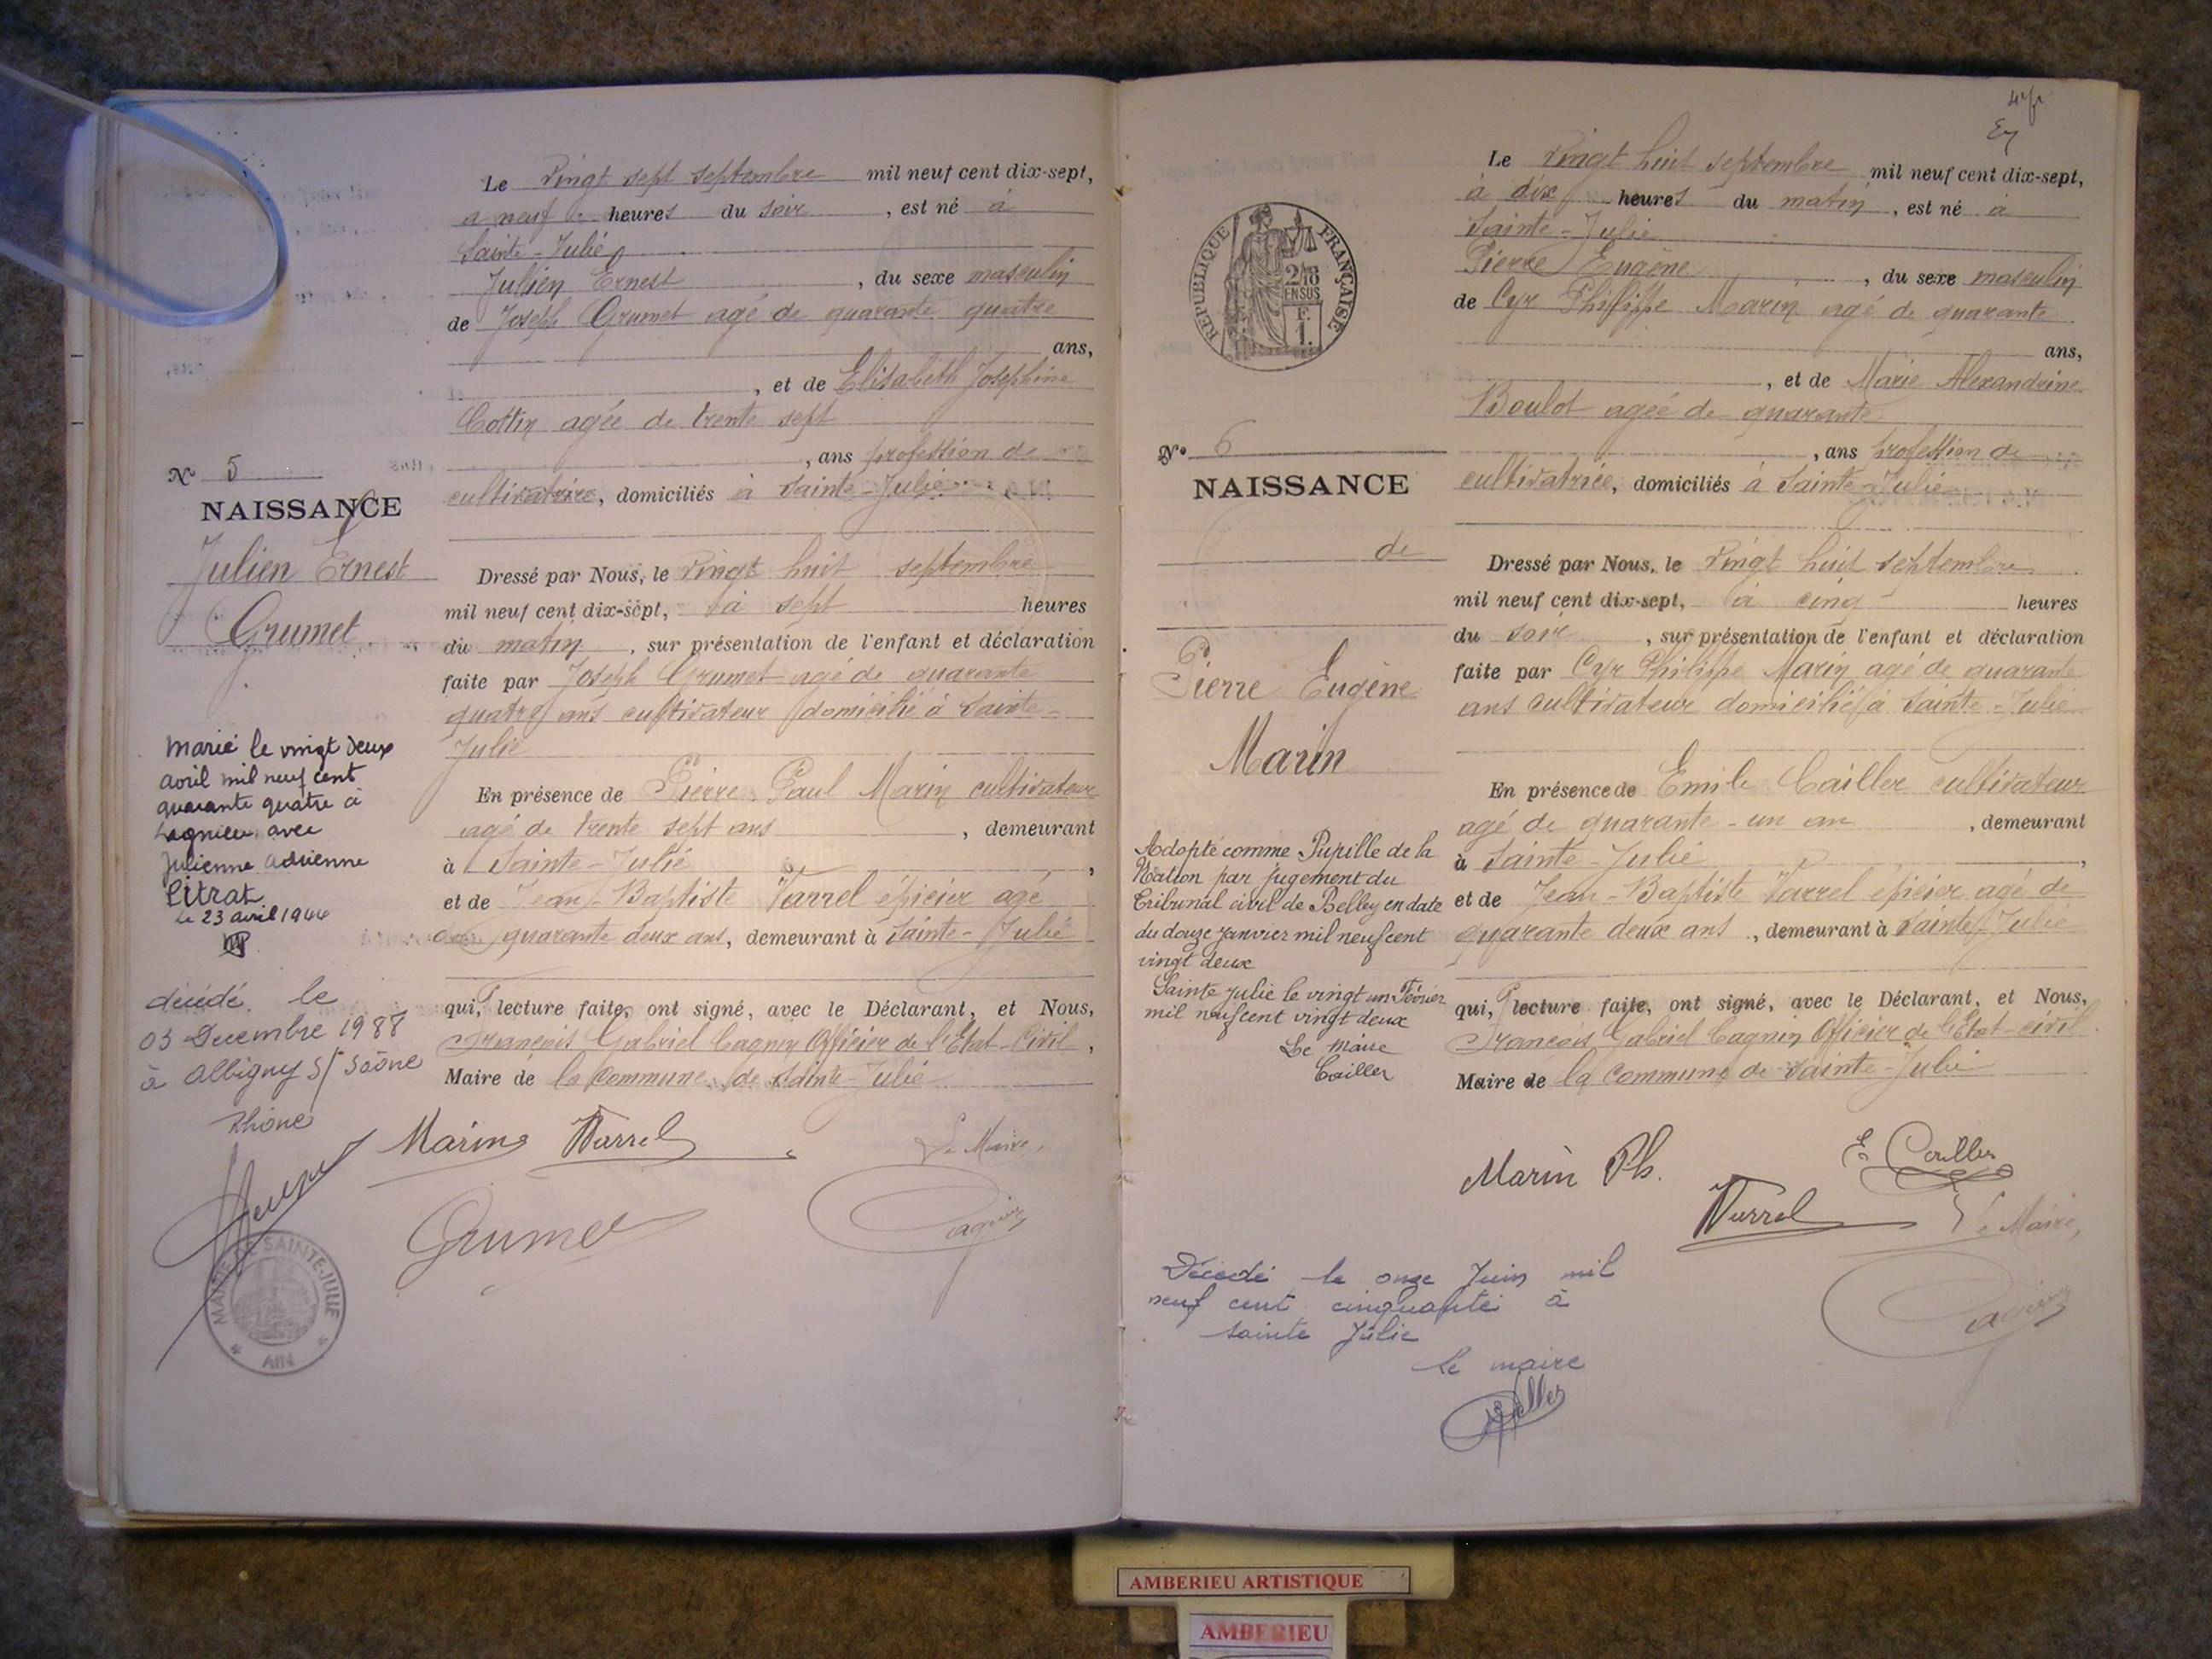 Le vingt sept septembre mil neuf cent dix-sept,
à neuf heures du soir, est né à
Sainte-Julie
Julien Ernest, du sexe masculin
de Joseph Grumet agé de quarante quatre
ans,
, et de Elisabeth Joséphine
Cottin agée de trente sept
, ans profession de
cultivatrice, domiciliés à Sainte-Julie
N° 5
NAISSANCE
Julien Ernest
Grumet
Dressé par Nous, le vingt huit septembre
mil neuf cent dix-sept, à sept heures
du matin, sur présentation de l'enfant et déclaration
faite par Joseph Grumet agé de quarante
quatre ans cultivateur domicilié à Sainte-
Julie
En présence de Pierre Paul Marin cultivateur
agé de trente sept ans, demeurant
à Sainte-Julie,
et de Jean-Baptiste Varrel épicier agé
de quarante deux ans, demeurant à Sainte-Julie
qui, lecture faite, ont signé, avec le Déclarant, et Nous,
François Gabriel Cagnin Officier de l'Etat-Civil,
Maire de la commune de Sainte-Julie
marié le vingt deux
avril mil neuf cent
quarante quatre à
Lagnieu avec
Julienne Adrienne
Citrat
le 23 avril 1944
décédé le
03 Decembre 1987
à Albigny S/ Saône
Rhône
Marin Varrel
Le Maire,
Grumet Cagnin
MAIRIE DE SAINTE-JULIE
* AIN *
4
Le vingt huit septembre mil neuf cent dix-sept,
à dix heures du matin, est né à
Sainte-Julie
Pierre Eugène, du sexe masculin
de Cyr Philippe Marin agé de quarante
ans,
, et de Marie Alexandrine
Boulot agée de quarante
, ans profession de
cultivatrice, domiciliés à Sainte-Julie
REPUBLIQUE FRANÇAISE
2/10
EN SUS
F.
1.
N° 6
NAISSANCE
de
Pierre Eugène
Marin
Dressé par Nous, le vingt huit septembre
mil neuf cent dix-sept, à cinq heures
du soir, sur présentation de l'enfant et déclaration
faite par Cyr Philippe Marin agé de quarante
ans cultivateur domicilié à Sainte-Julie
En présence de Emile Cailler cultivateur
agé de quarante-un an, demeurant
à Sainte-Julie,
et de Jean-Baptiste Varrel épicier agé de
quarante deux ans, demeurant à Sainte-Julie
qui, lecture faite, ont signé, avec le Déclarant, et Nous,
François Gabriel Cagnin Officier de l'Etat-civil
Maire de la commune de Sainte-Julie
Adopté comme Pupille de la
Nation par jugement du
Tribunal civil de Belley en date
du douze janvier mil neuf cent
vingt deux
Sainte Julie le vingt un Février
mil neuf cent vingt deux
Le Maire
Cailler
Marin Ph. E. Cailler
Varrel Le Maire,
Cagnin
Décédé le onze Juin mil
neuf cent cinquante à
Sainte Julie
Le maire
AMBERIEU ARTISTIQUE
AMBERIEU